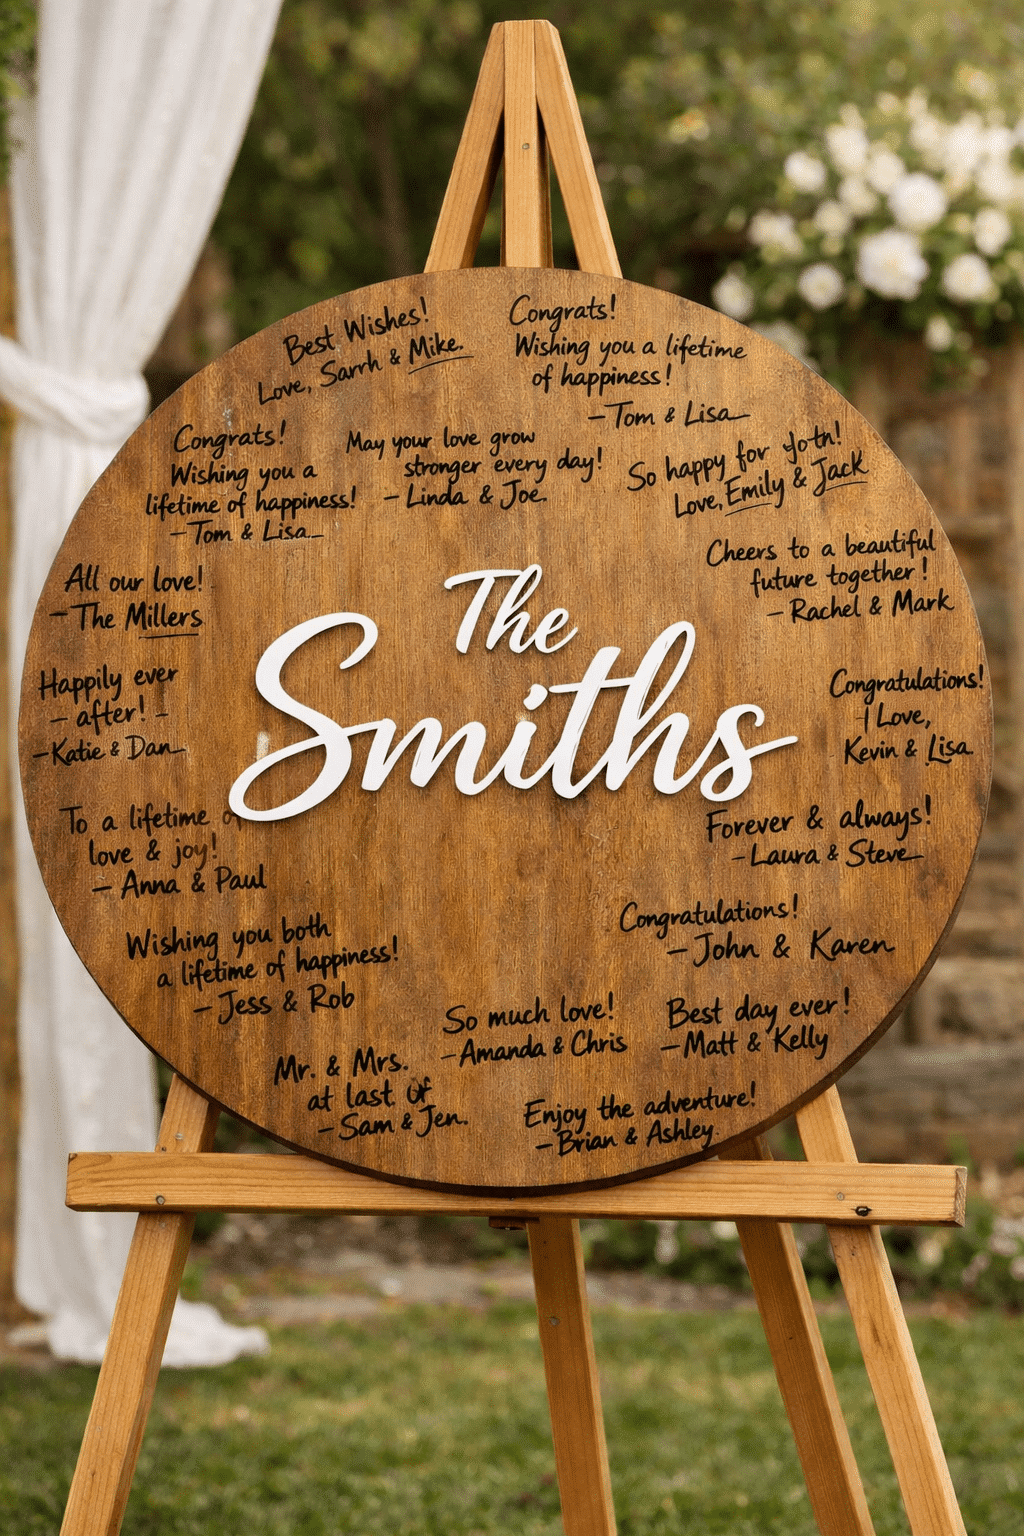 Best Wishes!
Love, Sarrh & Mike.
Congrats!
Wishing you a lifetime
of happiness!
– Tom & Lisa
Congrats!
Wishing you a
lifetime of happiness!
– Tom & Lisa
May your love grow
stronger every day!
– Linda & Joe.
So happy for
Love, Emily & Jack
All our love!
– The Millers
Cheers to a beautiful
future together!
– Rachel & Mark
The
Smiths
Happily ever
– after! –
– Katie & Dan
Congratulations!
Love,
Kevin & Lisa
To a lifetime of
love & joy!
– Anna & Paul
Forever & always!
– Laura & Steve
Wishing you both
a lifetime of happiness!
– Jess & Rob
Congratulations!
– John & Karen
So much love!
– Amanda & Chris
Best day ever!
– Matt & Kelly
Mr. & Mrs.
at last
– Sam & Jen.
Enjoy the adventure!
– Brian & Ashley